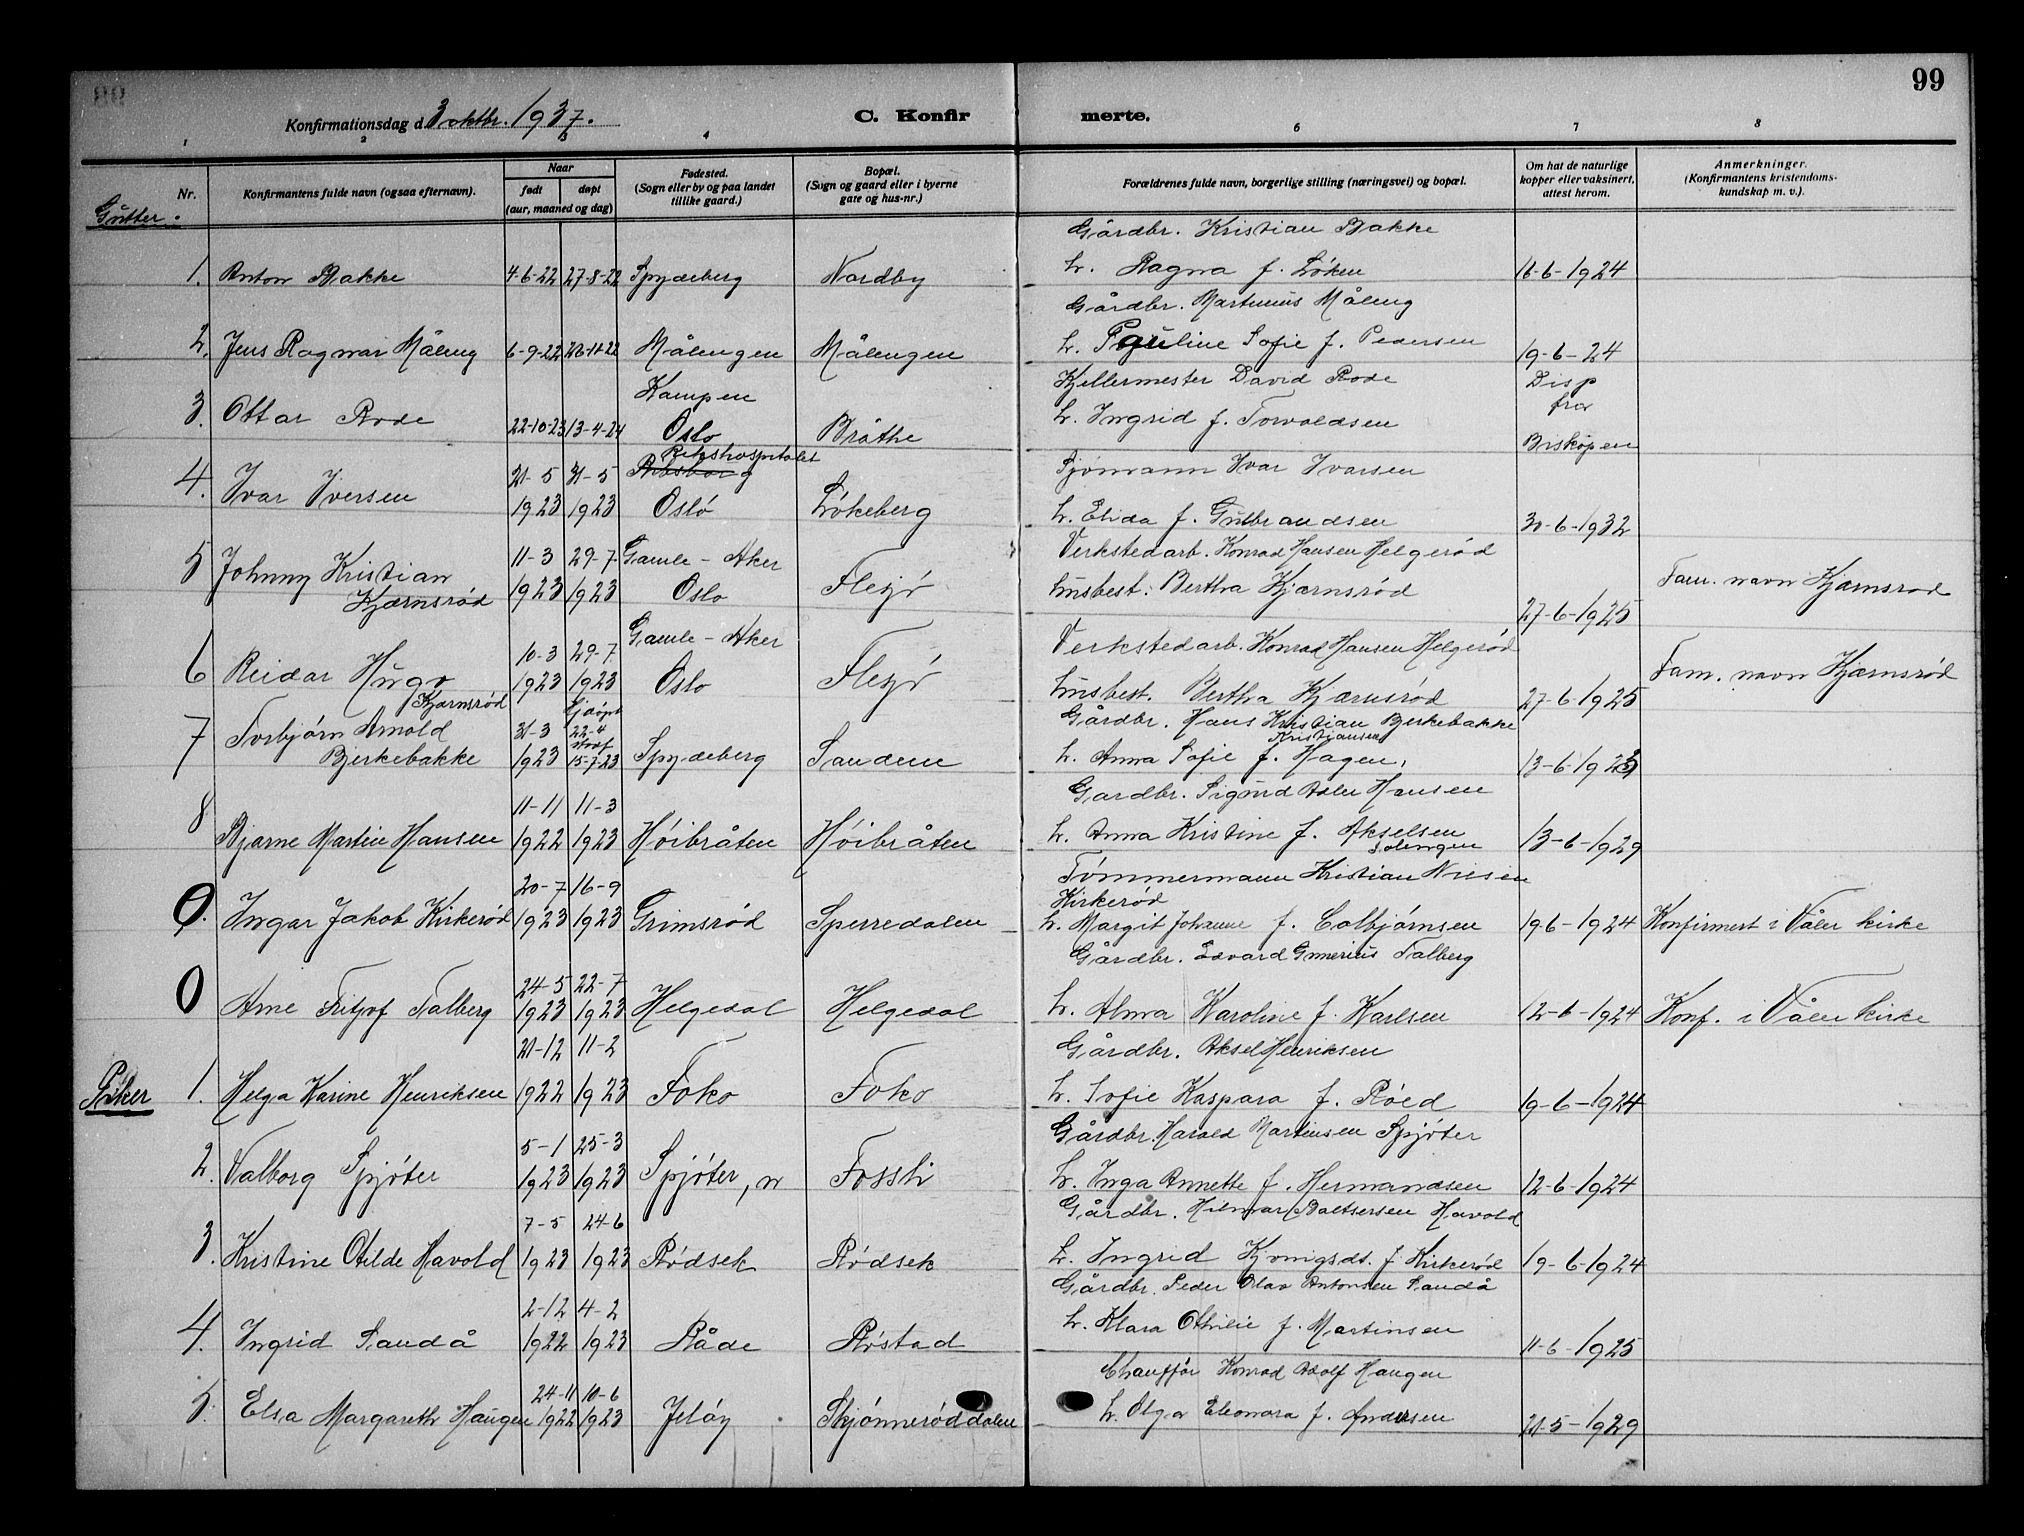 99
Konfirmationsdag d. 3 oktbr. 1937.
C. Konfirmerte.
1 2 3 4 6 7 8
Nr.
Konfirmantens fulde navn (ogsaa efternavn).
Naar
født
døpt
(aar, maaned og dag)
Fødested.
(Sogn eller by og paa landet
tillike gaard.)
Bopæl.
(Sogn og gaard eller i byerne
gate og hus-nr.)
Forældrenes fulde navn, borgerlige stilling (næringsvei) og bopæl.
Om hat de naturlige
kopper eller vaksinert,
attest herom.
Anmerkninger.
(Konfirmantens kristendoms-
kundskap m. v.).
Gutter:
Gårdbr. Kristian Bakke
1. Anton Bakke 4-6-22 27-8-22 Spydeberg Nordby h. Ragna f. Løken 16-6-1924
Gårdbr. Martinius Måleng
2. Jens Ragnar Måleng 6-9-22 26-11-22 Målengen Målengen h. Pauline Sofie f. Pedersen 19-6-24
Kampen Kjellermester David Rode Disp
3. Ottar Rode 22-10-23 13-4-24 Oslo Bråthe h. Ingrid f. Torvaldsen fra
Biskopen
Rikshospitalet
4. Ivar Iversen 21-5 31-5 Sjømann Ivar Ivarsen
1923 1923 Oslo Løkeberg h. Elida f. Gulbrandsen 30-6-1932
5 Johnny Kristian 11-3 29-7 Gamle-Aker Verkstedarb. Konrad Hansen Helgerød
Kjærnsrød 1923 1923 Oslo Flesjø husbest. Bertha Kjærnsrød 27-6-1925 Fam. navn Kjærnsrød
6 Reidar Hugo 10-3 29-7 Gamle-Aker Verkstedarb. Konrad Hansen Helgerød
Kjærnsrød 1923 1923 Oslo Flesjø husbest. Bertha Kjærnsrød 27-6-1925 Fam. navn Kjærnsrød
7 Torbjørn Arnold 31-3 Gjdøpt 22-4 Gårdbr. Hans Kristian Bjerkebakke
Kristiansen
Bjerkebakke 1923 15-7-23 Spydeberg Sandem h. Anna Sofie f. Hagen, 13-6-1923
8 11-11 11-3 Gardbr. Sigurd Asler Hansen
Bjarne Martin Hansen 1922 1923 Høibråten Høibråten h. Anna Kristine f. Akselsen 13-6-1929
Solengen
20-7 16-9 Tømmermann Kristian Nilsen
Kirkerød
0. Ingar Jakob Kirkerød 1923 1923 Grimsrød Sperredalen h. Margit Johanne f. Colbjørnsen 19-6-1924 Konfirmert i Våler kirke
Gårdbr. Edvard Gunerius Talberg
0 24-5 22-7
Arne Fritjof Talberg 1923 1923 Helgedal Helgedal h. Alma Karoline f. Karlsen 12-6-1924 Konf. i Våler kirke
21-12 11-2 Gårdbr. Aksel Henriksen
Piker 1. Helga Karine Henriksen 1922 1923 Foko Foko h. Sofie Kaspara f. Røed 19-6-1924
5-1 25-3 Gårdbr. Harald Martinsen Spjøter
2. Valborg Spjøter 1923 1923 Spjøter, n Fossli h. Inga Annette f. Hermandsen 12-6-1924
7-5 24-6 Gårdbr. Hilmar Baltsersen Havold
3. Kristine Otilde Havold 1923 1923 Rødsek Rødsek h. Ingrid f. Kirkerød 19-6-1924
2-12 4-2 Gårdbr. Peder Olav Antonsen Sandå
4. Ingrid Sandå 1922 1923 Råde Røstad h. Klara Othilie f. Martinsen 11-6-1925
24-11 10-6 Chauffør Konrad Adolf Haugen
5. Elsa Margareth Haugen 1922 1923 Jeløy Skjønnerøddalen h. Olga Eleonora f. Andersen 21-5-1929